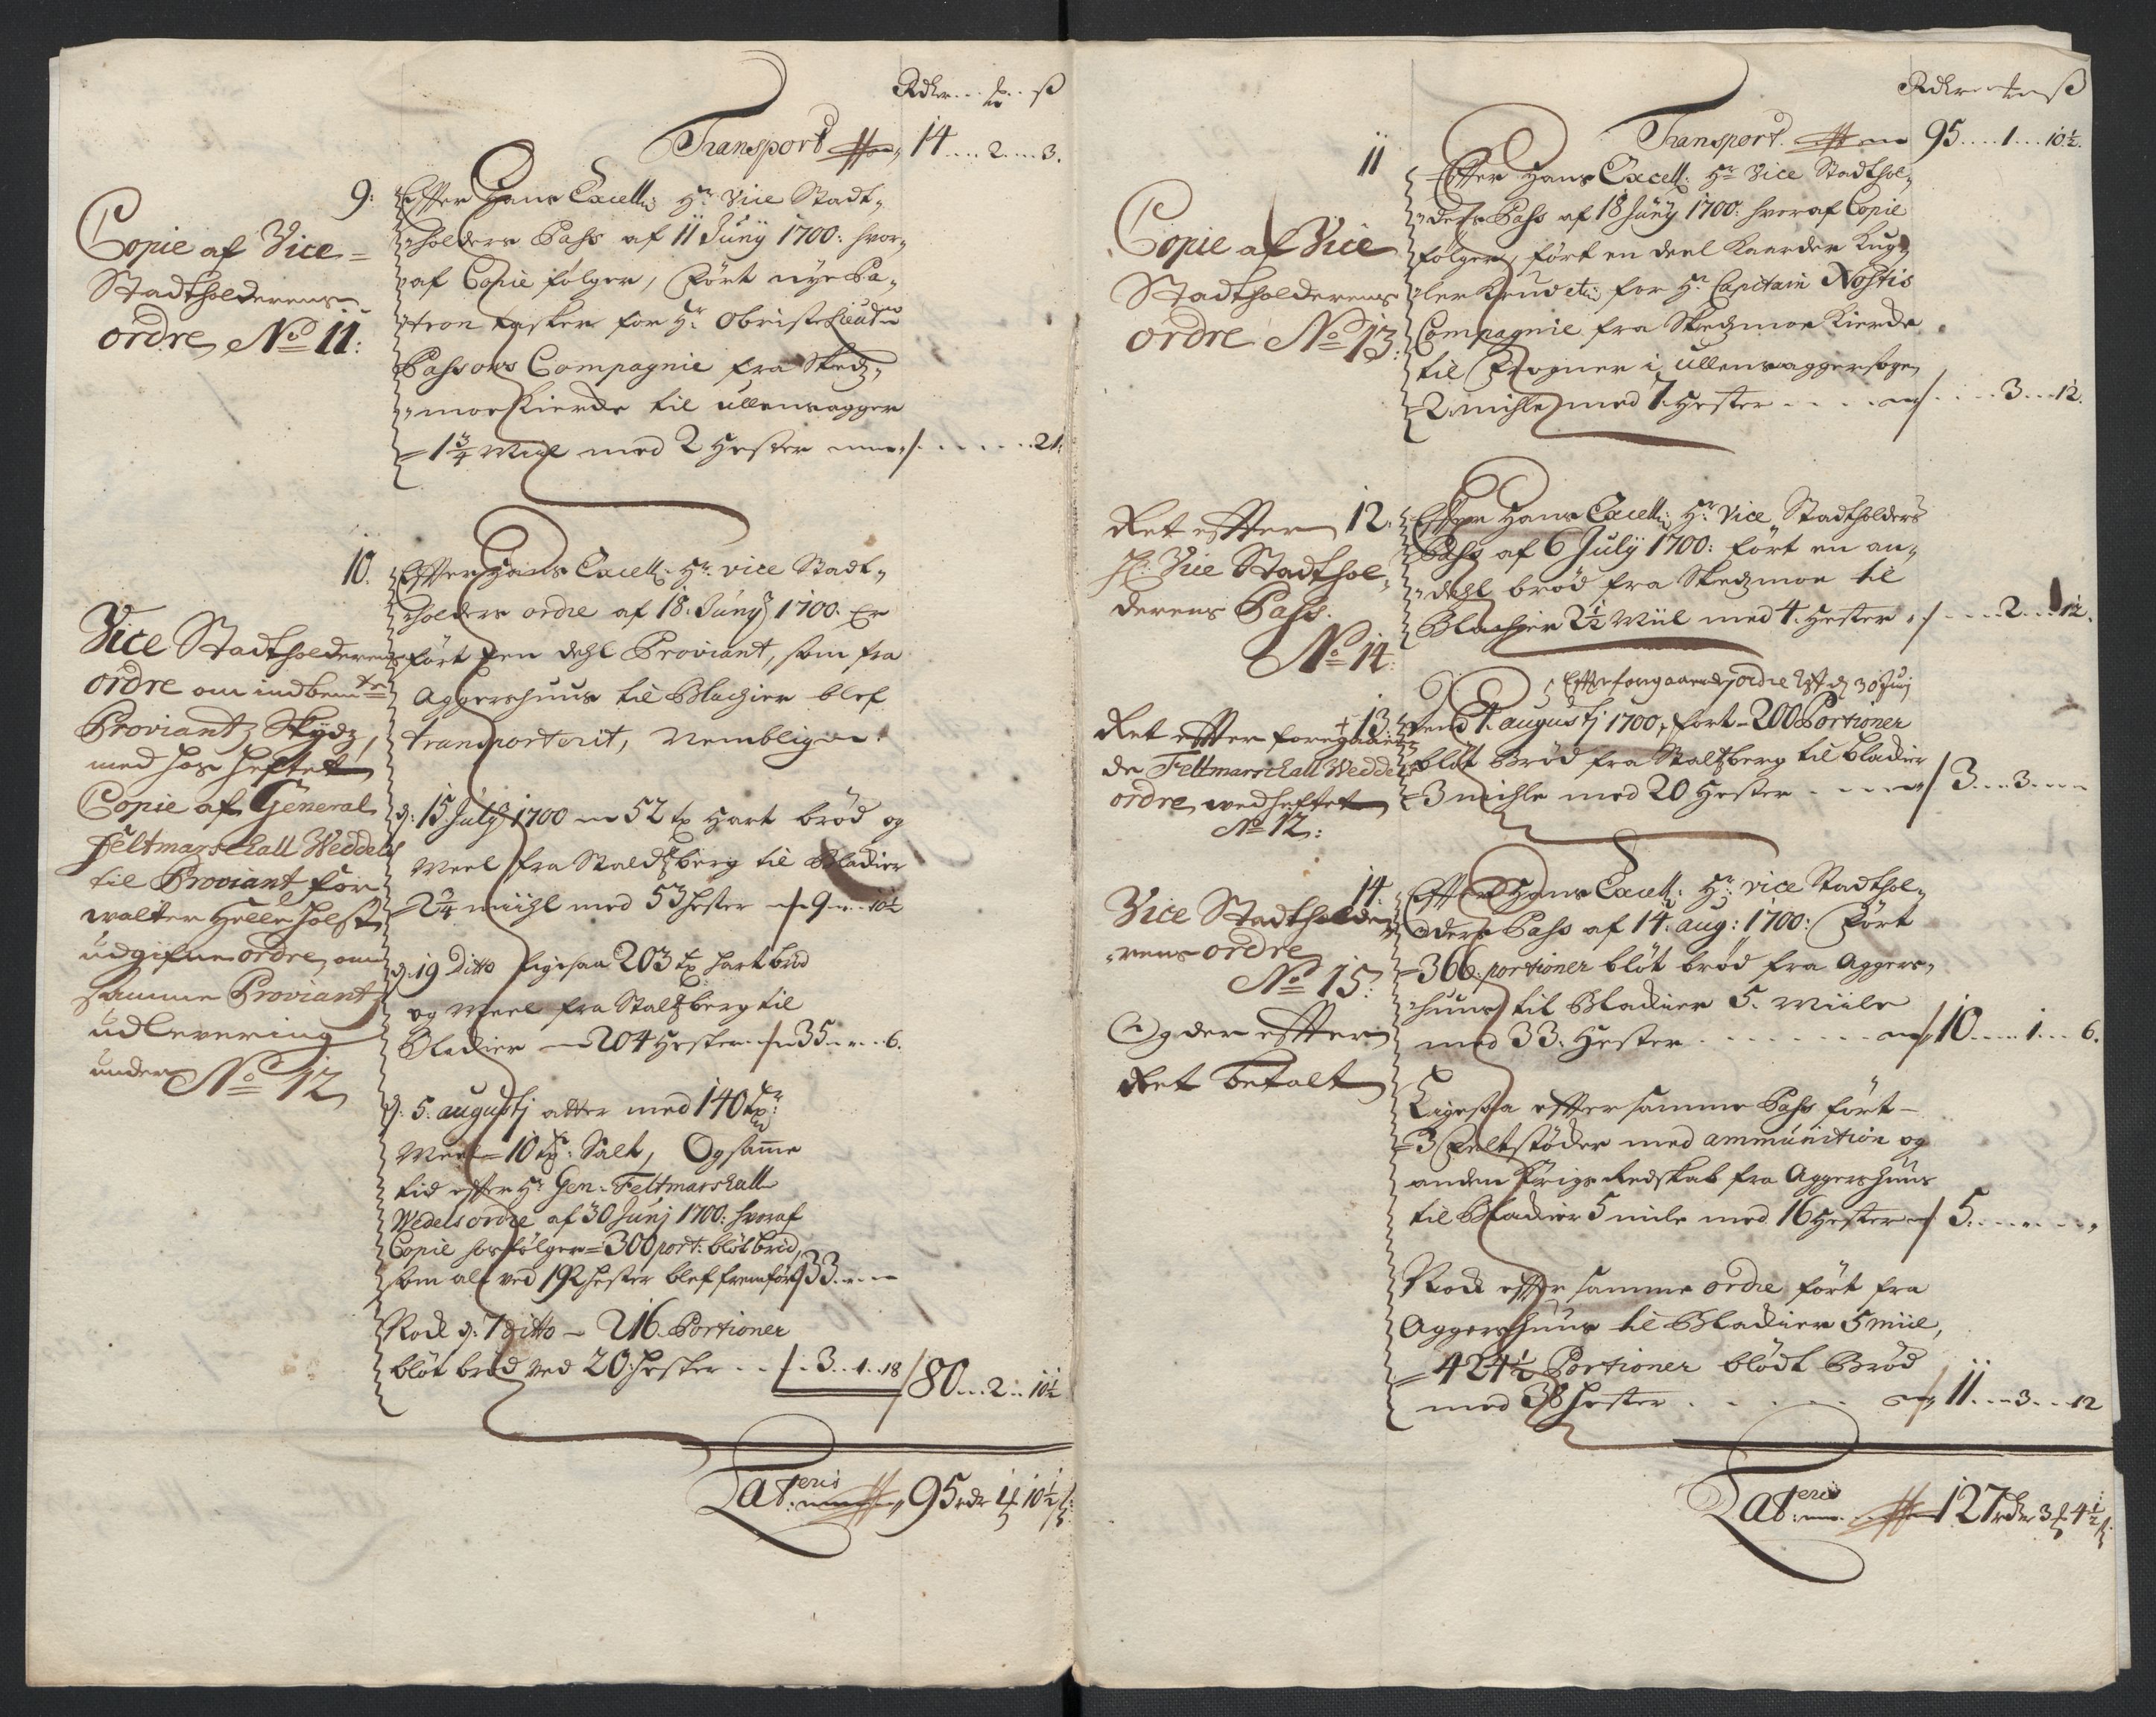 Rdlr ß
Transport 14 . . 2 . . 3.
Copie af Vice-
Stadtholderens
ordre, No 11:
9: Effter Hans Excell: Hr Vice Stadt-
holders Pass af 11 Junij 1700: hvor-
af Copie følger, Ført nye Pa-
tron tasker for Hr Obriste Lieutn
Passous Compagnie fra Skedz-
moe Kierche til Ullensagger
1 3/4 Miil med 2 Hester . . . 21.
Vice Stadtholderens
ordre om indbemte
Proviantz Skydz,
med hos heftet
Copie af General
Feltmarschall Weddels
til Proviant for
walter Helle Holst
udgifne ordre, om
samme Proviantz
udlevering
under No 12
10. Effter Hans Excell: Hr vice Stadt-
holders ordre af 18. Junij 1700. Er
ført een dehl Proviant, som fra
Aggershuus til Blachier blef
transporterit, Nemblig
d: 15 Julij 1700 52 tr hart brød og
Meel fra Staldtzberg til Bladier
2 3/4 miihl med 53 hester 9 . . . 10 1/2
d. 19 Ditto ligesaa 203 tr hart brød
og Meel fra Staltzberg til
Bladier 204 Hester 35 . . . 6.
d. 5. augustj atter med 140 tr:
Meel 10 tr: Salt, Og samme
tid effter Hr Gen: Feltmarschall
Wedels ordre af 30 Junj 1700: hvoraf
Copie hos følger 300 port: bløt brød,
som alt ved 192 hester blef fremført 33 . . .
Nock d: 7 ditto 216 Portioner
bløt brød ved 20 hester . . 3 . . 1 . . 18 80 . . 2 . . 10 1/2
Lateris 95 rdr 1 10 1/2 ß
Rdlr ß
Transport 95 . . . 1 . . 10 1/2.
Copie af Vice
Stadtholderens
ordre No 13:
11 Effter Hans Excell: Hr Vice Stadthol-
ders Pass af 18 Junij 1700: hvoraf Copie
følger, ført en deel Kaarder Kug-
ler Krud etc: for Hr Capitain Nostis
Compagnie fra Skedzmoe Kierche
til Frogner i Ullensaggersogn
2 mihle med 7 Hester . . . . 3 . . 12.
Ret effter
Hr Vice Stadthol-
derens Pass.
No 14:
12. Effter Hans Excell: Hr Vice Stadtholders
Pass af 6 Julij 1700: ført en an-
dehl brød fra Skedzmoe til
Blachier 2 1/2 Miil med 4. Hester . . . 2 . . 12.
Ret effter foregaaen-
de Feltmarschall Weddels
ordre, wedheftet
No 12:
Effter foregaaende ordre d 30 Junj
+ 13: dend 1. augustj 1700, ført 200 Portioner
bløt Brød fra Staltzberg til bladier
3 mihle med 20 Hester . . . 3 . . . 3 . . .
Vice Stadtholde-
rens ordre
No 15:
Og der effter
Ret betalt
14. Effter Hans Excell: Hr vice Stadthol-
ders Pass af 14. aug: 1700: Ført
366. portioner bløt brød fra Aggers-
huus til Bladier 5. Miile
med 33. Hester . . . 10 . . . 1 . . 6.
Ligesaa effter samme Pass ført
3 Feltstøcker med ammunition og
anden Krigs Redskab fra Aggershuus
til Bladier 5 mile med 16 Hester 5 . . . .
Nock effter samme ordre ført fra
Aggershuus til Bladier 5 miil,
424 1/2 Portioner blødt Brød
med 38 Hester . . . . 11 . . . 3 . . 12
Lateris 127 rdr 3 4 1/2 ß